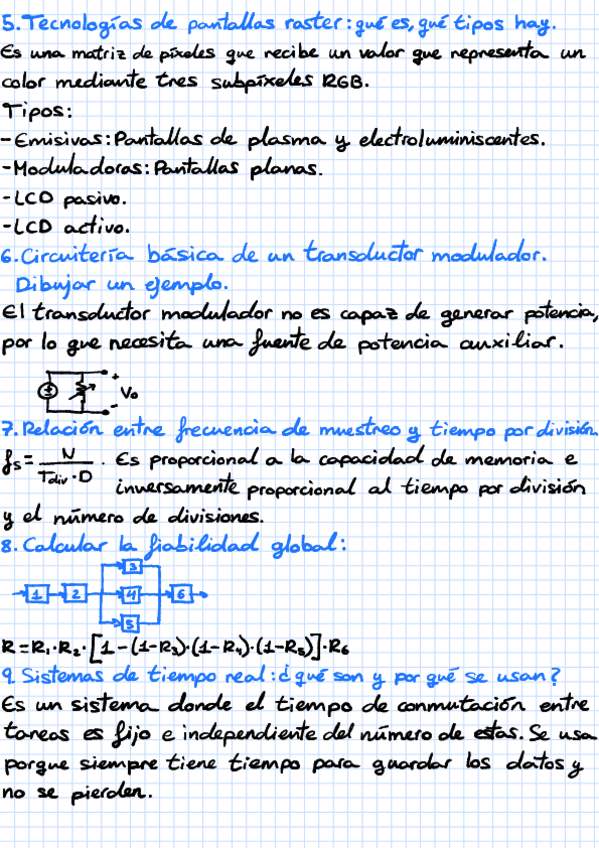 5. Tecnologías de pantallas raster: qué es, qué tipos hay.
Es una matriz de píxeles que recibe un valor que representa un
color mediante tres subpíxeles RGB.
Tipos:
- Emisivas: Pantallas de plasma y electroluminiscentes.
- Moduladoras: Pantallas planas.
- LCD pasivo.
- LCD activo.
6. Circuitería básica de un transductor modulador.
Dibujar un ejemplo.
El transductor modulador no es capaz de generar potencia,
por lo que necesita una fuente de potencia auxiliar.
+
Vo
-
7. Relación entre frecuencia de muestreo y tiempo por división.
fs = N / (Tdiv · D) . Es proporcional a la capacidad de memoria e
inversamente proporcional al tiempo por división
y el número de divisiones.
8. Calcular la fiabilidad global:
3
1 2 4 6
5
R = R1 · R2 · [1 - (1-R3)·(1-R4)·(1-R5)] · R6
9. Sistemas de tiempo real: ¿qué son y por qué se usan?
Es un sistema donde el tiempo de conmutación entre
tareas es fijo e independiente del número de estas. Se usa
porque siempre tiene tiempo para guardar los datos y
no se pierden.